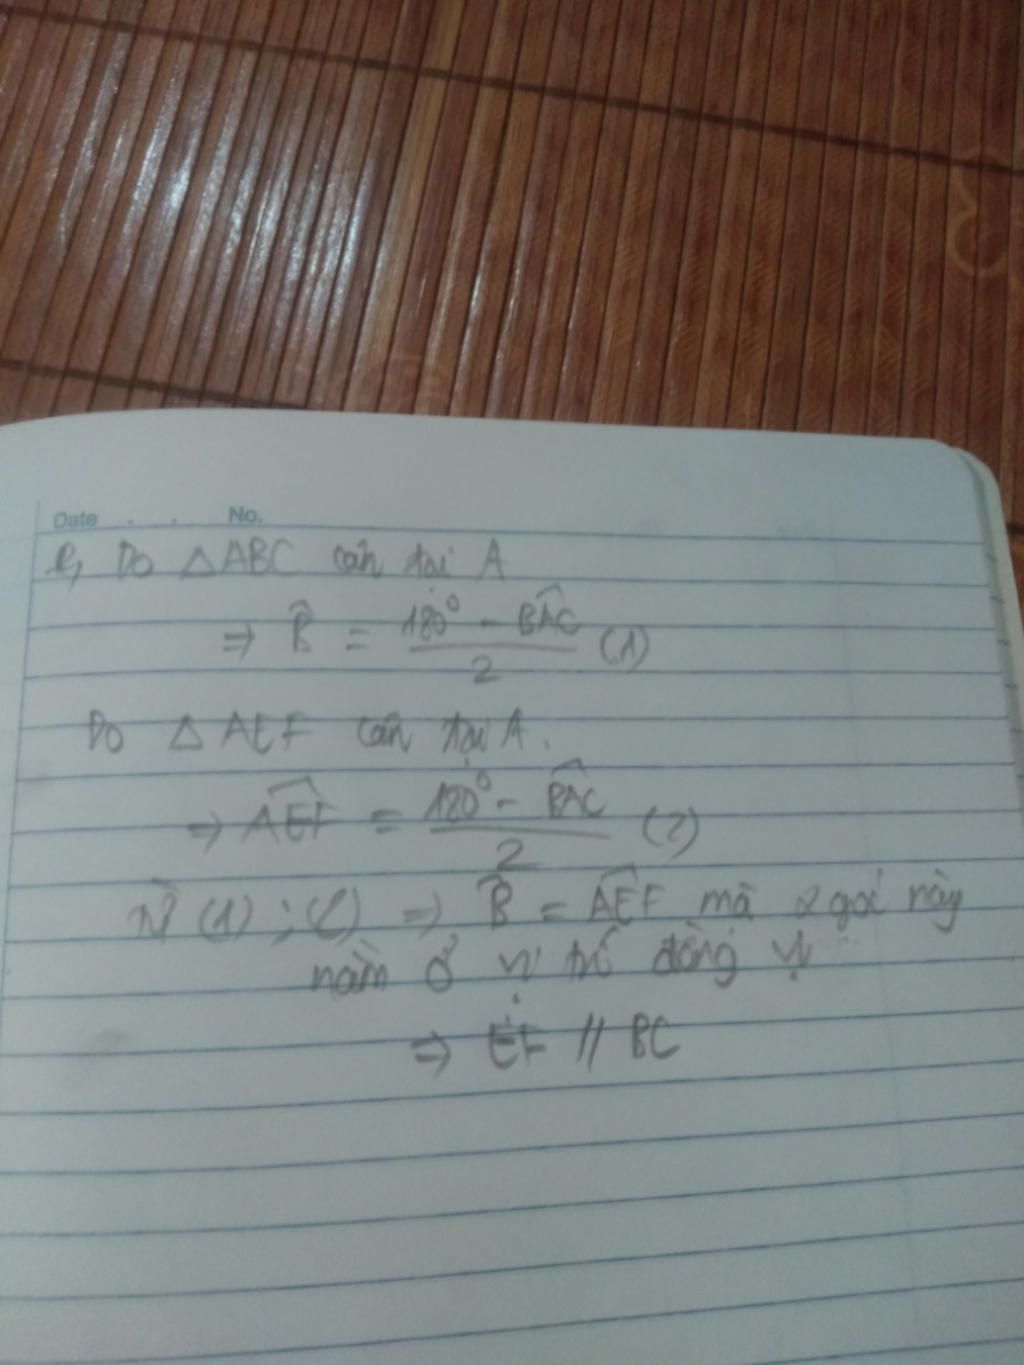 Date . . No.
e, Do △ABC cân tại A
⇒ B̂ = (180° - B̂AC)/2 (1)
Do △ AEF cân tại A.
⇒ ÂEF = (180° - B̂AC)/2 (2)
Từ (1) ; (2) ⇒ B̂ = ÂEF mà 2 góc này
nằm ở vị trí đồng vị
⇒ EF // BC